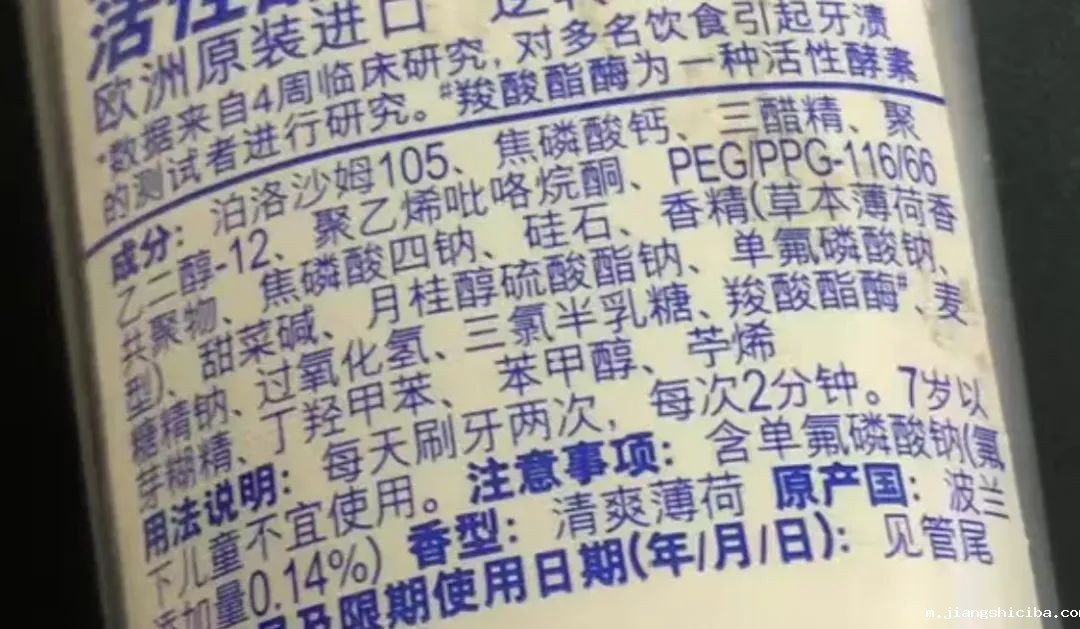 活性
欧洲原装进口
*数据来自4周临床研究, 对多名饮食引起牙渍
的测试者进行研究。#羧酸酯酶为一种活性酵素
成分：泊洛沙姆105、焦磷酸钙、三醋精、聚
乙二醇-12、聚乙烯吡咯烷酮、PEG/PPG-116/66
共聚物、焦磷酸四钠、硅石、香精(草本薄荷香
型)、甜菜碱、月桂醇硫酸酯钠、单氟磷酸钠、
糖精钠、过氧化氢、三氯半乳糖、羧酸酯酶#、麦
芽糊精、丁羟甲苯、苯甲醇、苧烯
用法说明：每天刷牙两次，每次2分钟。7岁以
下儿童不宜使用。注意事项：含单氟磷酸钠(氟
添加量0.14%) 香型：清爽薄荷 原产国：波兰
及限期使用日期(年/月/日)：见管尾
m.jiangshiciba.com